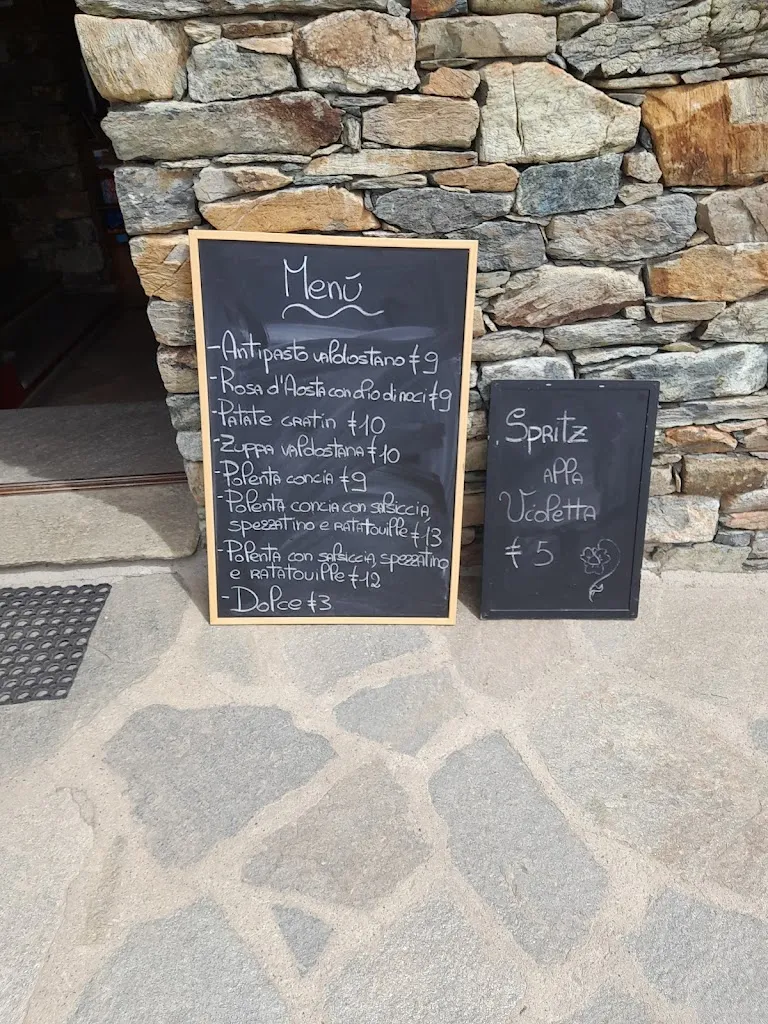 Menú
-Antipasto valdostano €9
-Rosa d'Aosta con olio di noci €9
-Patate gratin €10
-Zuppa valdostana €10
-Polenta concia €9
-Polenta concia con salsiccia,
spezzatino e ratatouille €13
-Polenta con salsiccia, spezzatino
e ratatouille €12
-Dolce €3
Spritz
alla
Violetta
€ 5